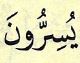 يُسِرُّونَ